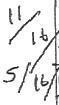 11/16
5/16